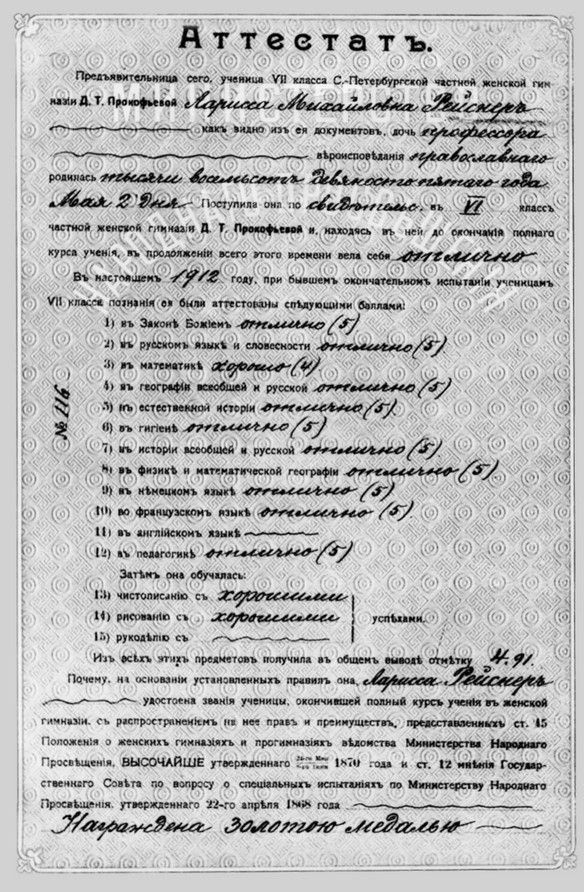 Аттестатъ.
Предъявительница сего, ученица VII класса С.-Петербургской частной женской гим-
назіи Д. Т. Прокофьевой Ларисса Михайловна Рейснеръ
какъ видно изъ ея документовъ, дочь профессора
вѣроисповѣданія православнаго
родилась тысячи восемьсотъ девяносто пятаго года
Мая 2 дня Поступила она по свидѣтельс. въ VI классъ
частной женской гимназіи Д. Т. Прокофьевой и, находясь въ ней до окончанія полнаго
курса ученія, въ продолженіи всего этого времени вела себя отлично
Въ настоящемъ 1912 году, при бывшемъ окончательномъ испытаніи ученицамъ
VII класса познанія ея были аттестованы слѣдующими баллами:
1) въ Законѣ Божіемъ отлично (5)
2) въ русскомъ языкѣ и словесности отлично (5)
3) въ математикѣ хорошо (4)
4) въ географіи всеобщей и русской отлично (5)
5) въ естественной исторіи отлично (5)
6) въ гигіенѣ отлично (5)
7) въ исторіи всеобщей и русской отлично (5)
8) въ физикѣ и математической географіи отлично (5)
9) въ нѣмецкомъ языкѣ отлично (5)
10) во французскомъ языкѣ отлично (5)
11) въ англійскомъ языкѣ
12) въ педагогикѣ отлично (5)
№ 116
Затѣмъ она обучалась:
13) чистописанію съ хорошими
14) рисованію съ хорошими успѣхами.
15) рукодѣлію съ
Изъ всѣхъ этихъ предметовъ получила въ общемъ выводѣ отмѣтку 4.91.
Почему, на основаніи установленныхъ правилъ она, Ларисса Рейснеръ
удостоена званія ученицы, окончившей полный курсъ ученія въ женской
гимназіи, съ распространеніемъ на нее правъ и преимуществъ, предоставленныхъ ст. 45
Положенія о женскихъ гимназіяхъ и прогимназіяхъ вѣдомства Министерства Народнаго
Просвѣщенія, ВЫСОЧАЙШЕ утвержденнаго 24-го Мая 1870 года и ст. 12 мнѣнія Государ-
ственнаго Совѣта по вопросу о спеціальныхъ испытаніяхъ по Министерству Народнаго
Просвѣщенія, утвержденнаго 22-го апрѣля 1868 года
Награждена золотою медалью